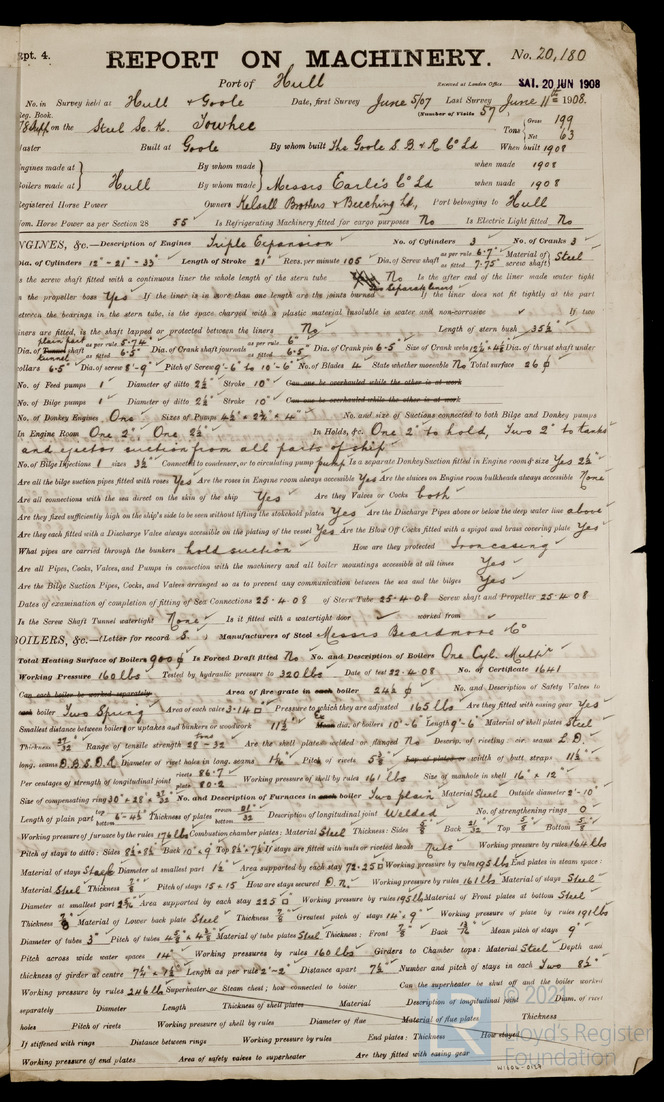 Rpt. 4.
REPORT ON MACHINERY. No. 20,180
Port of Hull Received at London Office SAT. 20 JUN 1908
No. in Survey held at Hull & Goole Date, first Survey June 5/07 Last Survey June 11th 1908.
Reg. Book. (Number of Visits 57)
on the Steel Sc. K. Towhee Tons { Gross 199 Net 63
Master Built at Goole By whom built The Goole S. B. & R. Co Ld When built 1908
Engines made at Hull By whom made Messrs Earle's Co Ld when made 1908
Boilers made at By whom made when made 1908
Registered Horse Power Owners Kelsall Brothers & Beeching Ld, Port belonging to Hull
Nom. Horse Power as per Section 28 55 Is Refrigerating Machinery fitted for cargo purposes No Is Electric Light fitted No
ENGINES, &c.—Description of Engines Triple Expansion No. of Cylinders 3 No. of Cranks 3
Dia. of Cylinders 12" - 21" - 33" Length of Stroke 21" Revs. per minute 105 Dia. of Screw shaft as per rule 6.7" as fitted 7.75" Material of screw shaft Steel
Is the screw shaft fitted with a continuous liner the whole length of the stern tube No Is the after end of the liner made water tight
two separate liners
in the propeller boss Yes If the liner is in more than one length are the joints burned If the liner does not fit tightly at the part
between the bearings in the stern tube, is the space charged with a plastic material insoluble in water and non-corrosive If two
liners are fitted, is the shaft lapped or protected between the liners No Length of stern bush 35½"
plain part
Dia. of Tunnel shaft as per rule 5.74" as fitted 6.5" Dia. of Crank shaft journals as per rule 6" as fitted 6.5" Dia. of Crank pin 6.5" Size of Crank webs Dia. of thrust shaft under
collars 6.5" Dia. of screw 8'-9" Pitch of Screw 9'-6" to 10'-6" No. of Blades 4 State whether moveable No Total surface 26
No. of Feed pumps 1 Diameter of ditto 2½" Stroke 10" Can one be overhauled while the other is at work
No. of Bilge pumps 1 Diameter of ditto 2½" Stroke 10" Can one be overhauled while the other is at work
No. of Donkey Engines One Sizes of Pumps 4½" × 2¾" × 4" No. and size of Suctions connected to both Bilge and Donkey pumps
In Engine Room One 2" One 2½" In Holds, &c. One 2" to hold, Two 2" to tanks
and ejector suction from all parts of ship
No. of Bilge Injections 1 sizes 3½" Connected to condenser, or to circulating pump pump Is a separate Donkey Suction fitted in Engine room & size Yes 2½"
Are all the bilge suction pipes fitted with roses Yes Are the roses in Engine room always accessible Yes Are the sluices on Engine room bulkheads always accessible None
Are all connections with the sea direct on the skin of the ship Yes Are they Valves or Cocks both
Are they fixed sufficiently high on the ship's side to be seen without lifting the stokehold plates Yes Are the Discharge Pipes above or below the deep water line above
Are they each fitted with a Discharge Valve always accessible on the plating of the vessel Yes Are the Blow Off Cocks fitted with a spigot and brass covering plate Yes
What pipes are carried through the bunkers hold suction How are they protected Iron casing
Are all Pipes, Cocks, Valves, and Pumps in connection with the machinery and all boiler mountings accessible at all times Yes
Are the Bilge Suction Pipes, Cocks, and Valves arranged so as to prevent any communication between the sea and the bilges Yes
Dates of examination of completion of fitting of Sea Connections 25.4.08 of Stern Tube 25.4.08 Screw shaft and Propeller 25.4.08
Is the Screw Shaft Tunnel watertight None Is it fitted with a watertight door worked from
BOILERS, &c.—(Letter for record S.) Manufacturers of Steel Messrs Beardmore Co
Total Heating Surface of Boilers 900 Is Forced Draft fitted No No. and Description of Boilers One Cyl. Multr
Working Pressure 160 lbs Tested by hydraulic pressure to 320 lbs Date of test 22.4.08 No. of Certificate 1641
Can each boiler be worked separately Area of fire grate in each boiler 24½ No. and Description of Safety Valves to
each boiler Two Spring Area of each valve 3.14 □" Pressure to which they are adjusted 165 lbs Are they fitted with easing gear Yes
Smallest distance between boilers or uptakes and bunkers or woodwork 11½" Ex Mean dia. of boilers 10'-6" Length 9'-6" Material of shell plates Steel
Thickness 27/32 Range of tensile strength 28-32 tons Are the shell plates welded or flanged No Descrip. of riveting: cir. seams L.D.
long. seams D.B.S.D.R. Diameter of rivet holes in long. seams Pitch of rivets Lap of plates or width of butt straps 11½"
Per centages of strength of longitudinal joint rivets 86.7 plate 80.2 Working pressure of shell by rules 161 lbs Size of manhole in shell 16" × 12"
Size of compensating ring 30" × 28" × 27/32 No. and Description of Furnaces in each boiler Two plain Material Steel Outside diameter 2'-10"
Length of plain part top 6'-4½" bottom Thickness of plates crown bottom 21/32 Description of longitudinal joint Welded No. of strengthening rings 0
Working pressure of furnace by the rules 176 lbs Combustion chamber plates: Material Steel Thickness: Sides 5/8" Back 21/32" Top 5/8" Bottom 5/8"
Pitch of stays to ditto: Sides 8½ × 8½" Back 10" × 9" Top 8½ × 7½" If stays are fitted with nuts or riveted heads Nuts Working pressure by rules 164 lbs
Material of stays Steel Diameter at smallest part 1½" Area supported by each stay 72.25 □" Working pressure by rules 195 lbs End plates in steam space:
Material Steel Thickness 7/8" Pitch of stays 15 × 15 How are stays secured D.N. Working pressure by rules 161 lbs Material of stays Steel
Diameter at smallest part Area supported by each stay 225 □" Working pressure by rules 195 lbs Material of Front plates at bottom Steel
Thickness 7/8" Material of Lower back plate Steel Thickness 7/8" Greatest pitch of stays 14" × 9" Working pressure of plate by rules 191 lbs
Diameter of tubes 3" Pitch of tubes Material of tube plates Steel Thickness: Front 7/8" Back 13/16" Mean pitch of stays 9"
Pitch across wide water spaces 14" Working pressures by rules 160 lbs Girders to Chamber tops: Material Steel Depth and
thickness of girder at centre 7½" × 1½" Length as per rule 2'-2" Distance apart 7½" Number and pitch of stays in each Two 8½"
Working pressure by rules 246 lbs Superheater or Steam chest; how connected to boiler Can the superheater be shut off and the boiler worked
separately Diameter Length Thickness of shell plates Material Description of longitudinal joint Diam. of rivet
holes Pitch of rivets Working pressure of shell by rules Diameter of flue Material of flue plates Thickness
If stiffened with rings Distance between rings Working pressure by rules End plates: Thickness How stayed
Working pressure of end plates Area of safety valves to superheater Are they fitted with easing gear
© 2021
Lloyd's Register
Foundation